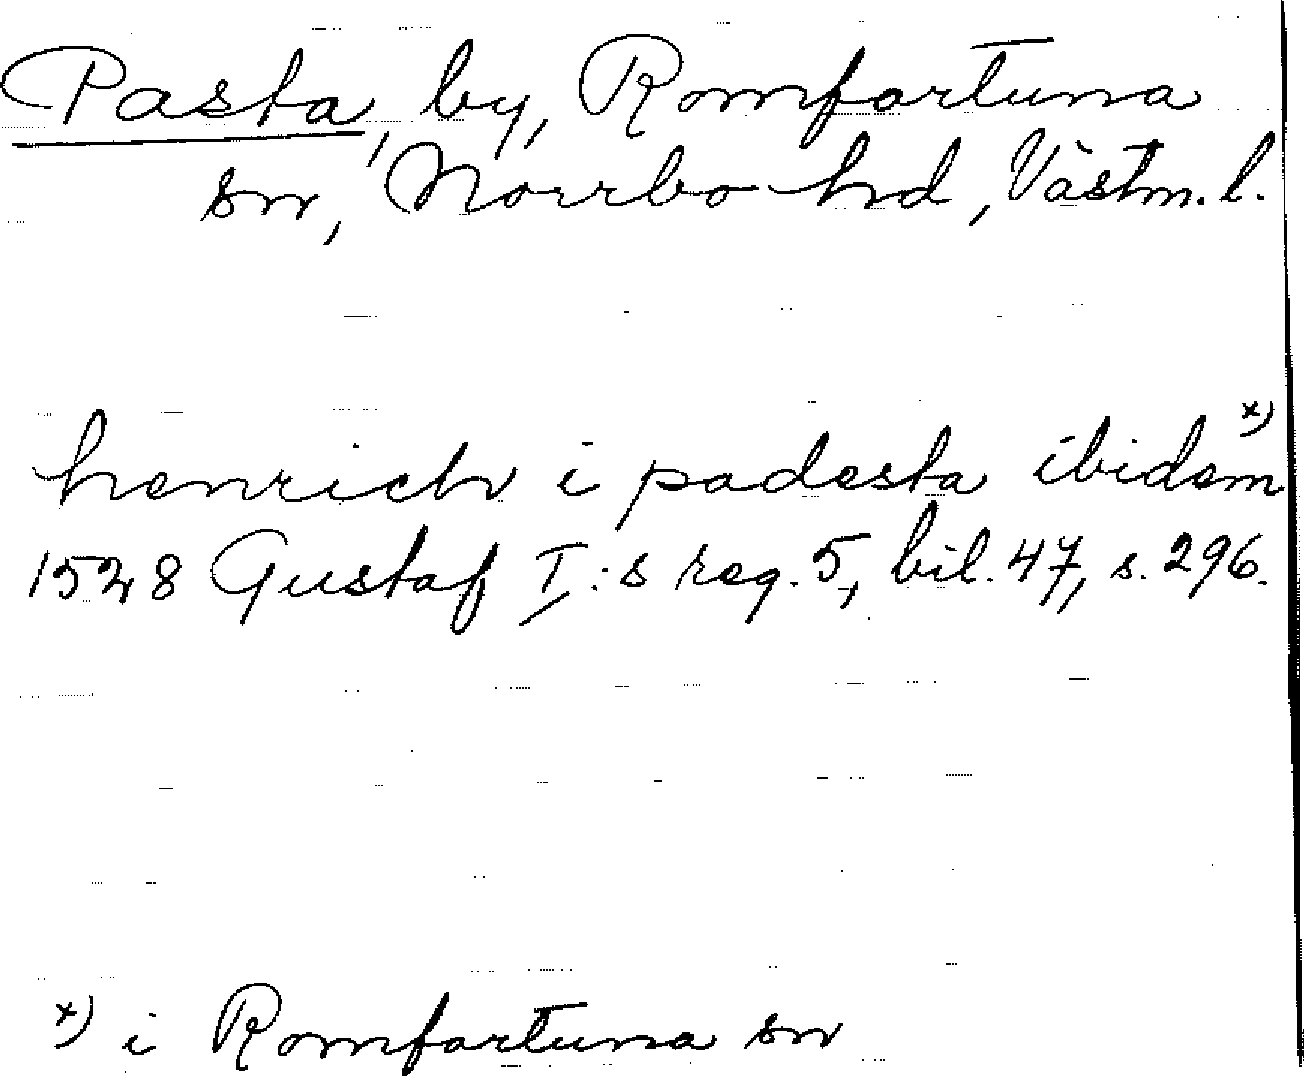 Pasta, by, Romfartuna
sn, Norrbo hd, Västm. l.
henrich i padesta ibidem x)
1528 Gustaf I:s reg. 5, bil. 47, s. 296.
x) i Romfartuna sn